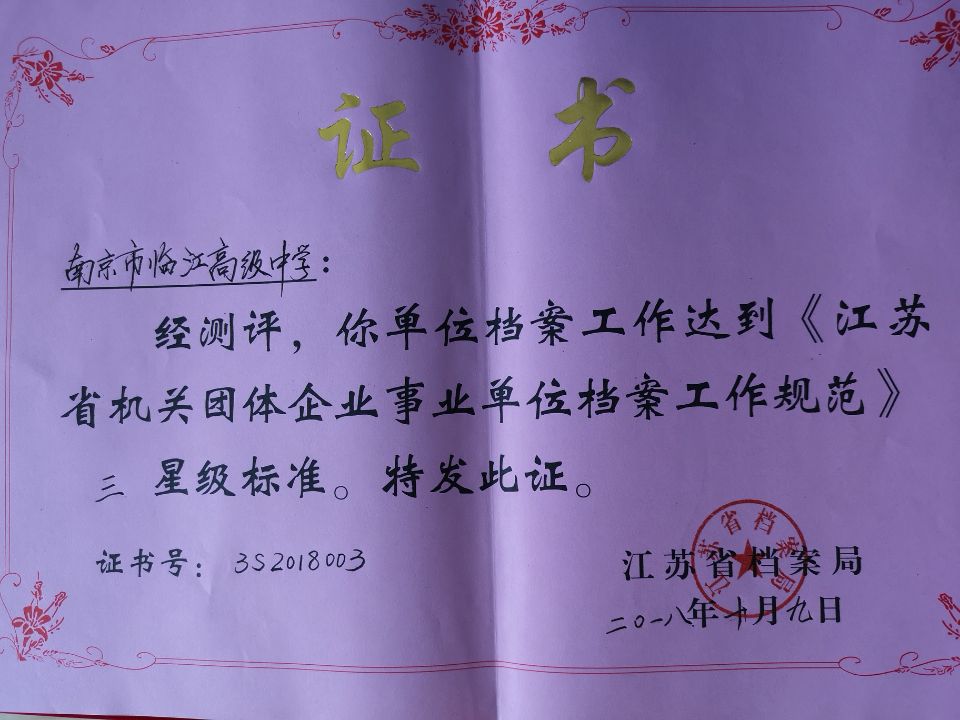 证书
南京市临江高级中学：
经测评，你单位档案工作达到《江苏
省机关团体企业事业单位档案工作规范》
三星级标准。特发此证。
证书号：3S2018003
江苏省档案局
江苏省档案局
二〇一八年十月九日